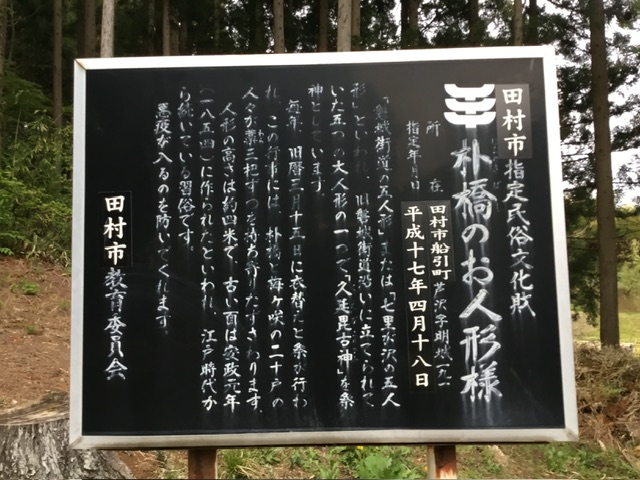 田村市指定民俗文化財
朴橋のお人形様
所在 田村市船引町芦沢字明城
指定年月日 平成十七年四月十八日
「磐城街道の五人形」または「七里ヶ沢の五人
形」といわれ、旧磐城街道沿いに立てられて
いた五つの大人形の一つで、久延毘古神を祭
神としています。
毎年、旧暦三月十五日に衣替えと祭が行わ
れ、この行事には、朴橋と梅ヶ咲の二十戸の
人々が藁三把ずつを持ち寄りたずさわります。
人形の高さは約四米で、古い面は安政元年
(一八五四)に作られたといわれ、江戸時代か
ら続いている習俗です。
悪疫が入るのを防いでくれます。
田村市教育委員会